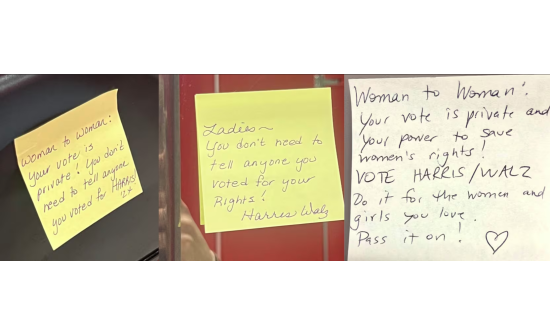 Woman to Woman:
Your vote is
private! You don't
need to tell anyone
you voted for HARRIS
Ladies~
You don't need to
tell anyone you
voted for your
Rights!
Harris Walz
Woman to Woman:
Your vote is private and
Your power to save
women's rights!
VOTE HARRIS/WALZ
Do it for the women and
girls you love.
Pass it on! ♡